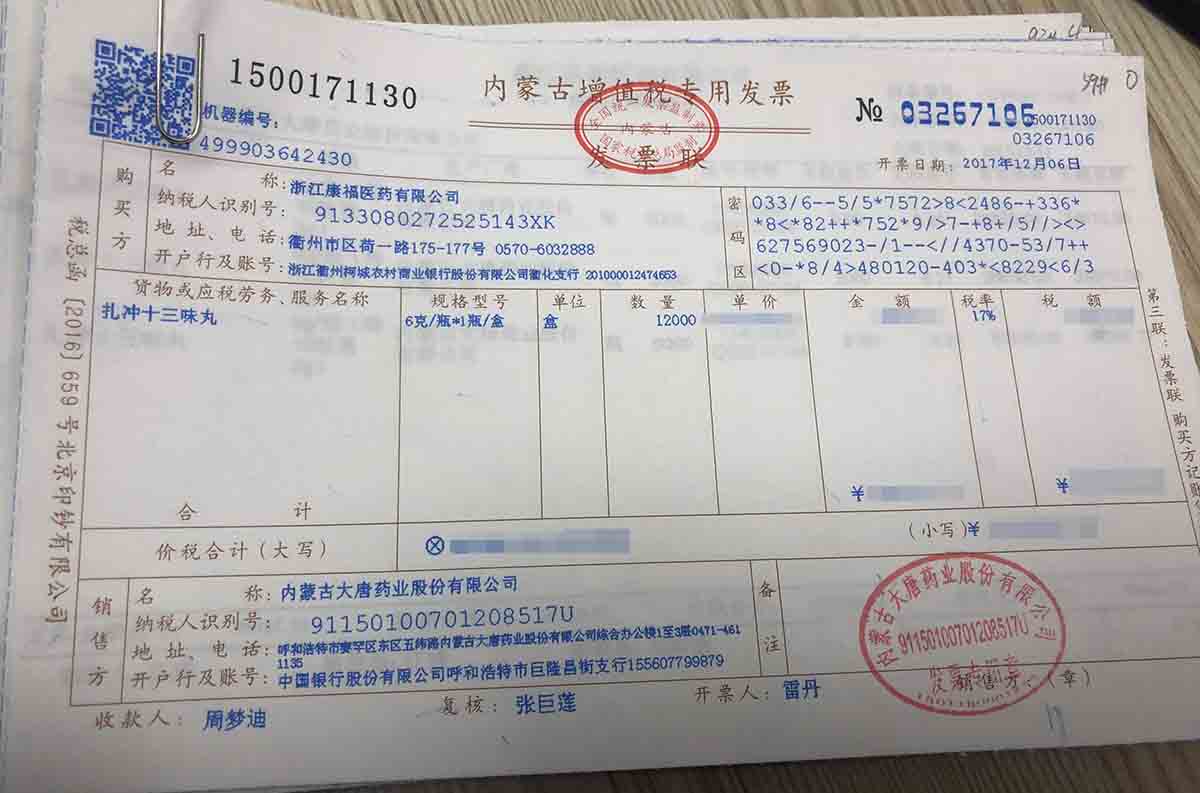 1500171130
内蒙古增值税专用发票
发票联
№ 03267106
1500171130
03267106
机器编号:
499903642430
开票日期: 2017年12月06日
购买方
名 称: 浙江康福医药有限公司
纳税人识别号: 9133080272525143XK
地址、电话: 衢州市区荷一路175-177号 0570-6032888
开户行及账号: 浙江衢州柯城农村商业银行股份有限公司衢化支行 201000012474653
密码区
033/6--5/5*7572>8<2486-+336*
*8<*82++*752*9/>7-+8+/5//><>
627569023-/1--<//4370-53/7++
<0-*8/4>480120-403*<8229<6/3
货物或应税劳务、服务名称 规格型号 单位 数量 单价 金额 税率 税额
扎冲十三味丸 6克/瓶*1瓶/盒 盒 12000 17%
合计 ¥ ¥
价税合计(大写) ⊗ (小写)¥
销售方
名 称: 内蒙古大唐药业股份有限公司
纳税人识别号: 91150100701208517U
地址、电话: 呼和浩特市赛罕区东区五纬路内蒙古大唐药业股份有限公司综合办公楼1至3层0471-461
1135
开户行及账号: 中国银行股份有限公司呼和浩特市巨隆昌街支行155607799879
备注
内蒙古大唐药业股份有限公司
91150100701208517U
发票专用章
销售方:(章)
收款人: 周梦迪 复核: 张巨莲 开票人: 雷丹
税总函〔2016〕659号北京印钞有限公司
第三联:发票联 购买方记账